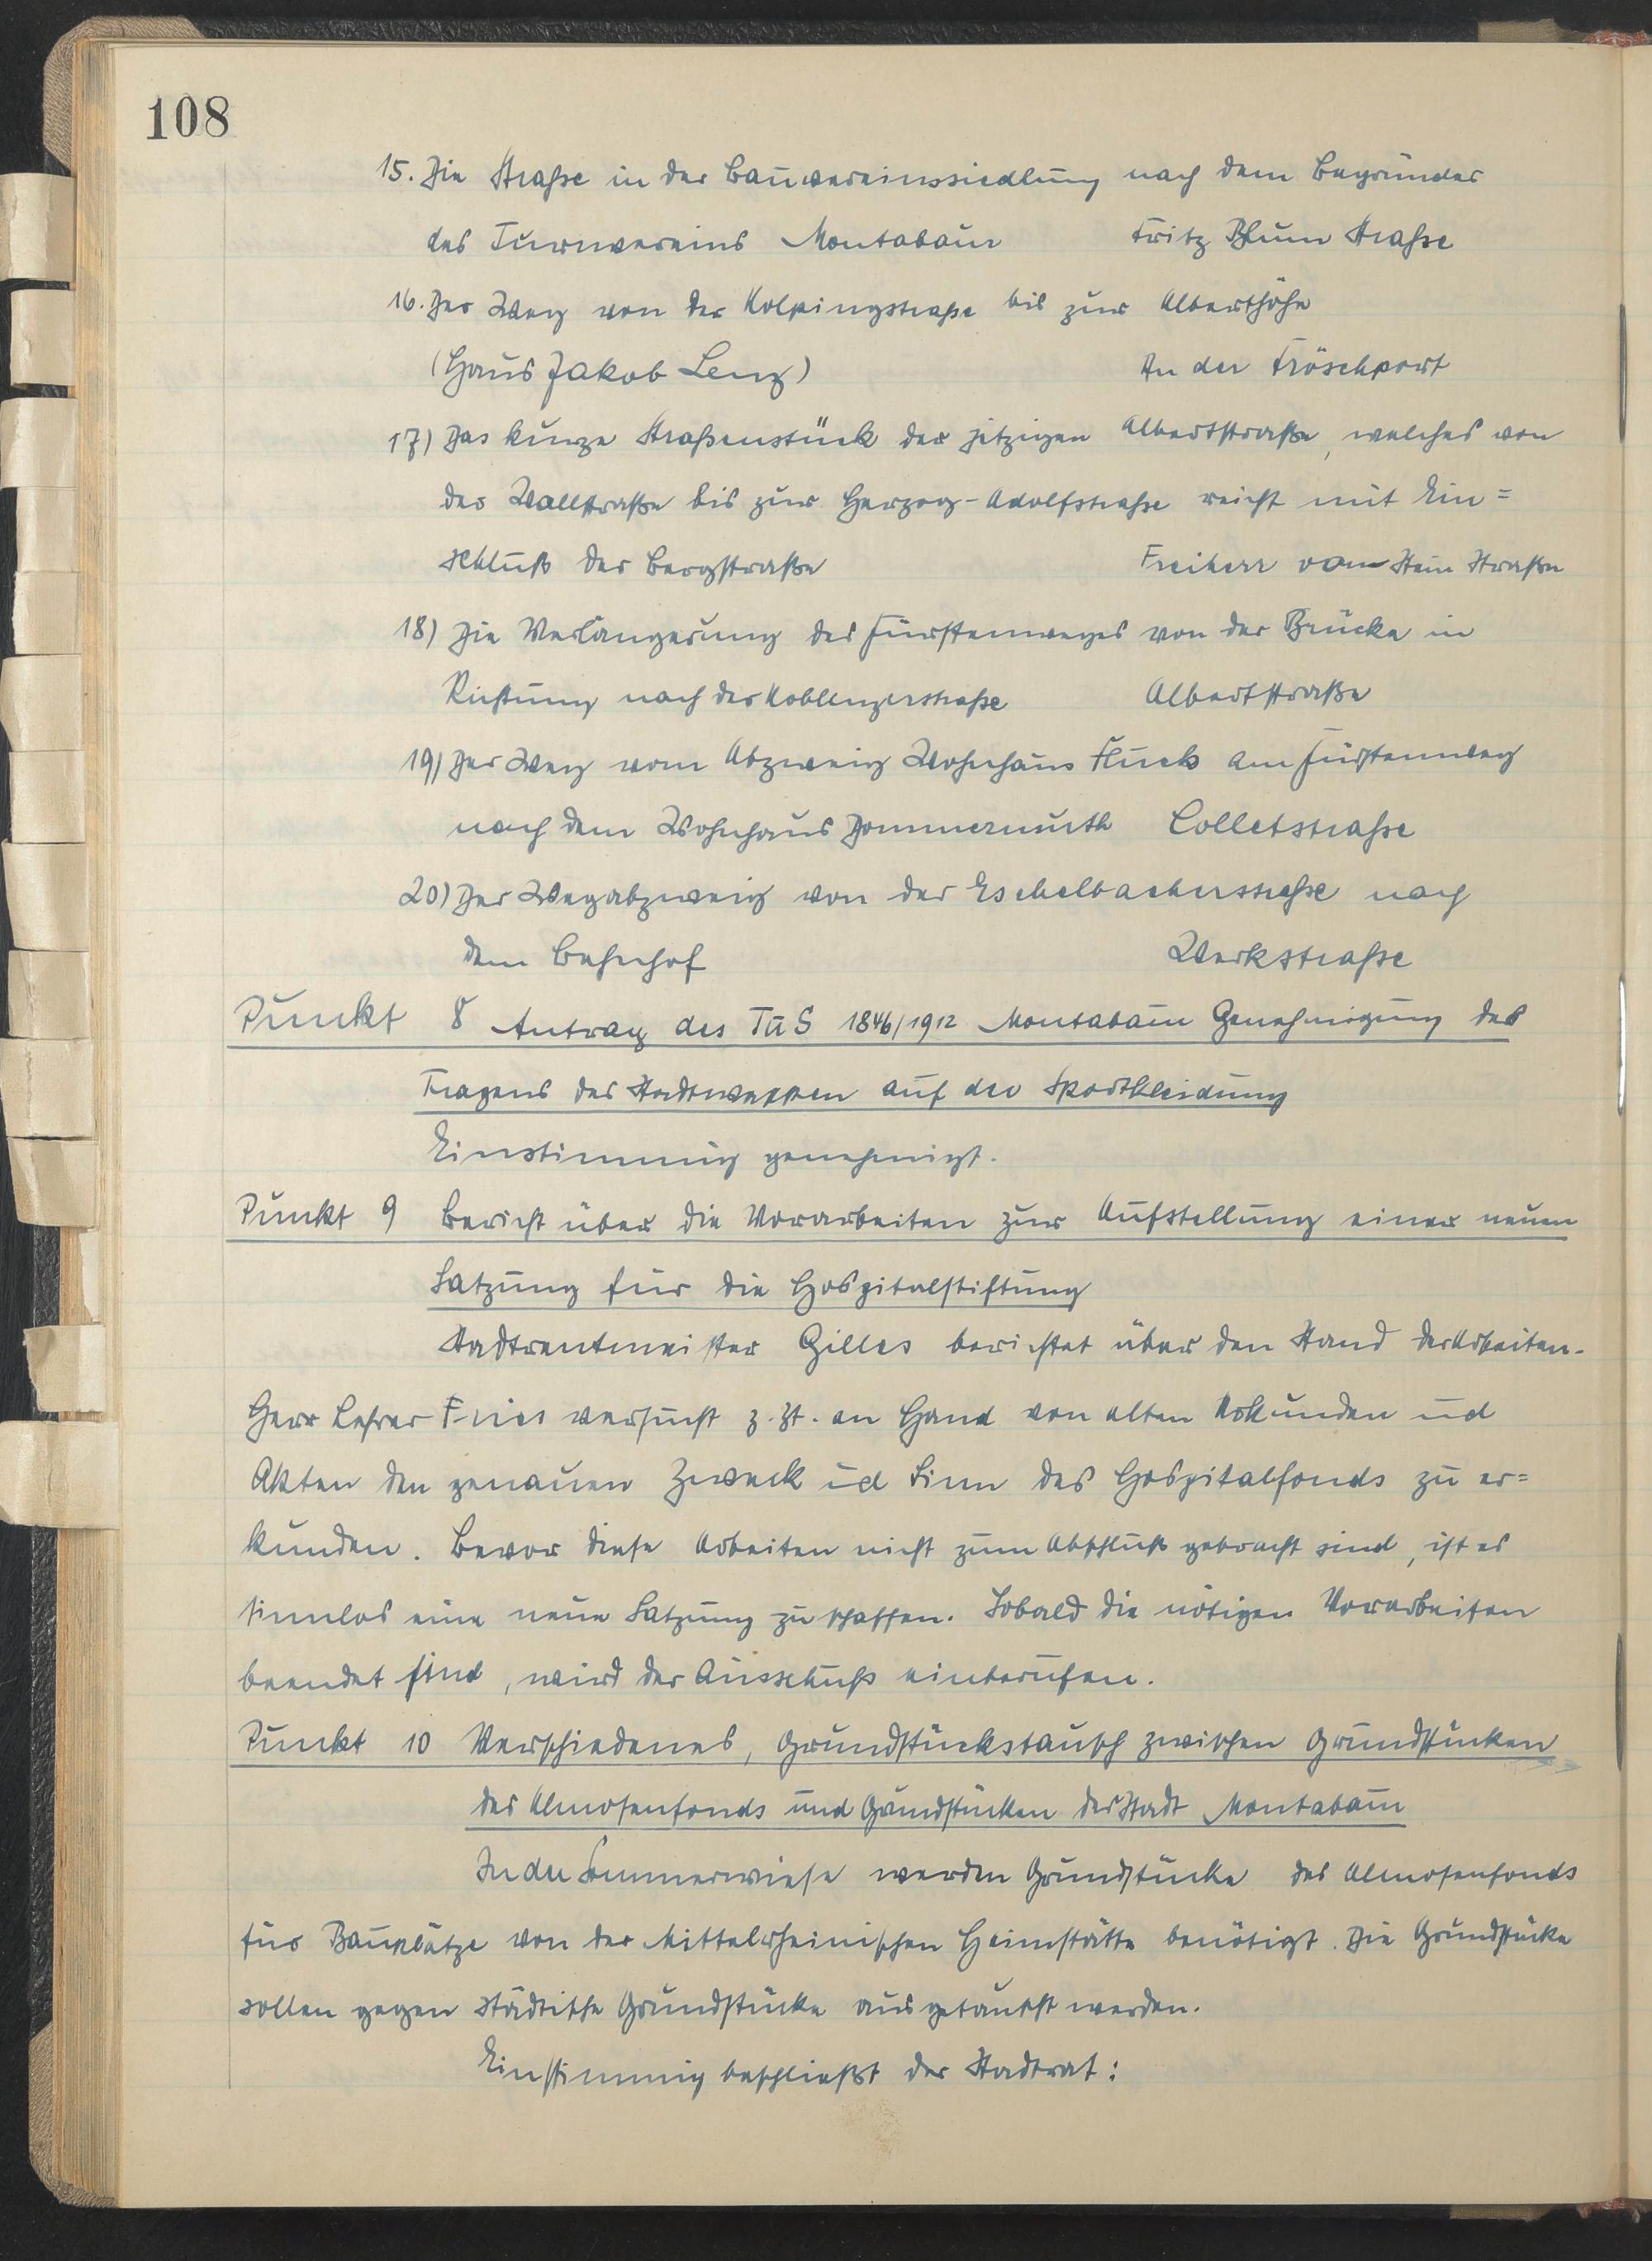 108
15. Die Straße in der Bauvereinssiedlung nach dem Begründer
des Turnvereins Montabaur Fritz Blum Straße
16. Der Weg von der Kolpingstraße bis zur Alberthöhe
(Haus Jakob Lenz) An der Fröschport
17) Das kurze Straßenstück der jetzigen Albertstraße, welches von
der Wallstraße bis zur Herzog-Adolfstraße reicht mit Ein=
schluß der Bergstraße Freiherr vom Stein Straße
18) Die Verlängerung des Fürstenweges von der Brücke in
Richtung nach der Koblenzerstraße Albertstraße
19) Der Weg vom Abzweig Wohnhaus Fluck am Fürstenweg
nach dem Wohnhaus Dommermuth Colletstraße
20) Der Wegabzweig von der Eschelbacherstraße nach
dem Bahnhof Werkstraße
Punkt 8 Antrag des TuS 1846/1912 Montabaur Genehmigung des
Tragens des Stadtwappen auf der Sportkleidung
Einstimmig genehmigt.
Punkt 9 Bericht über die Vorarbeiten zur Aufstellung einer neuen
Satzung für die Hospitalstiftung
Stadtrentmeister Gilles berichtet über den Stand der Arbeiten.
Herr Lehrer Fries versucht z. Zt. an Hand von alten Urkunden ud
Akten den genauen Zweck ud Sinn des Hospitalfonds zu er=
kunden. Bevor diese Arbeiten nicht zum Abschluß gebracht sind, ist es
sinnlos eine neue Satzung zu schaffen. Sobald die nötigen Vorarbeiten
beendet sind, wird der Ausschuß einberufen.
Punkt 10 Verschiedenes, Grundstückstausch zwischen Grundstücken
des Almosenfonds und Grundstücken der Stadt Montabaur
In der Sommerwiese werden Grundstücke des Almosenfonds
für Bauplätze von der Mittelrheinischen Heimstätte benötigt. Die Grundstücke
sollen gegen städtische Grundstücke ausgetauscht werden.
Einstimmig beschließt der Stadtrat: